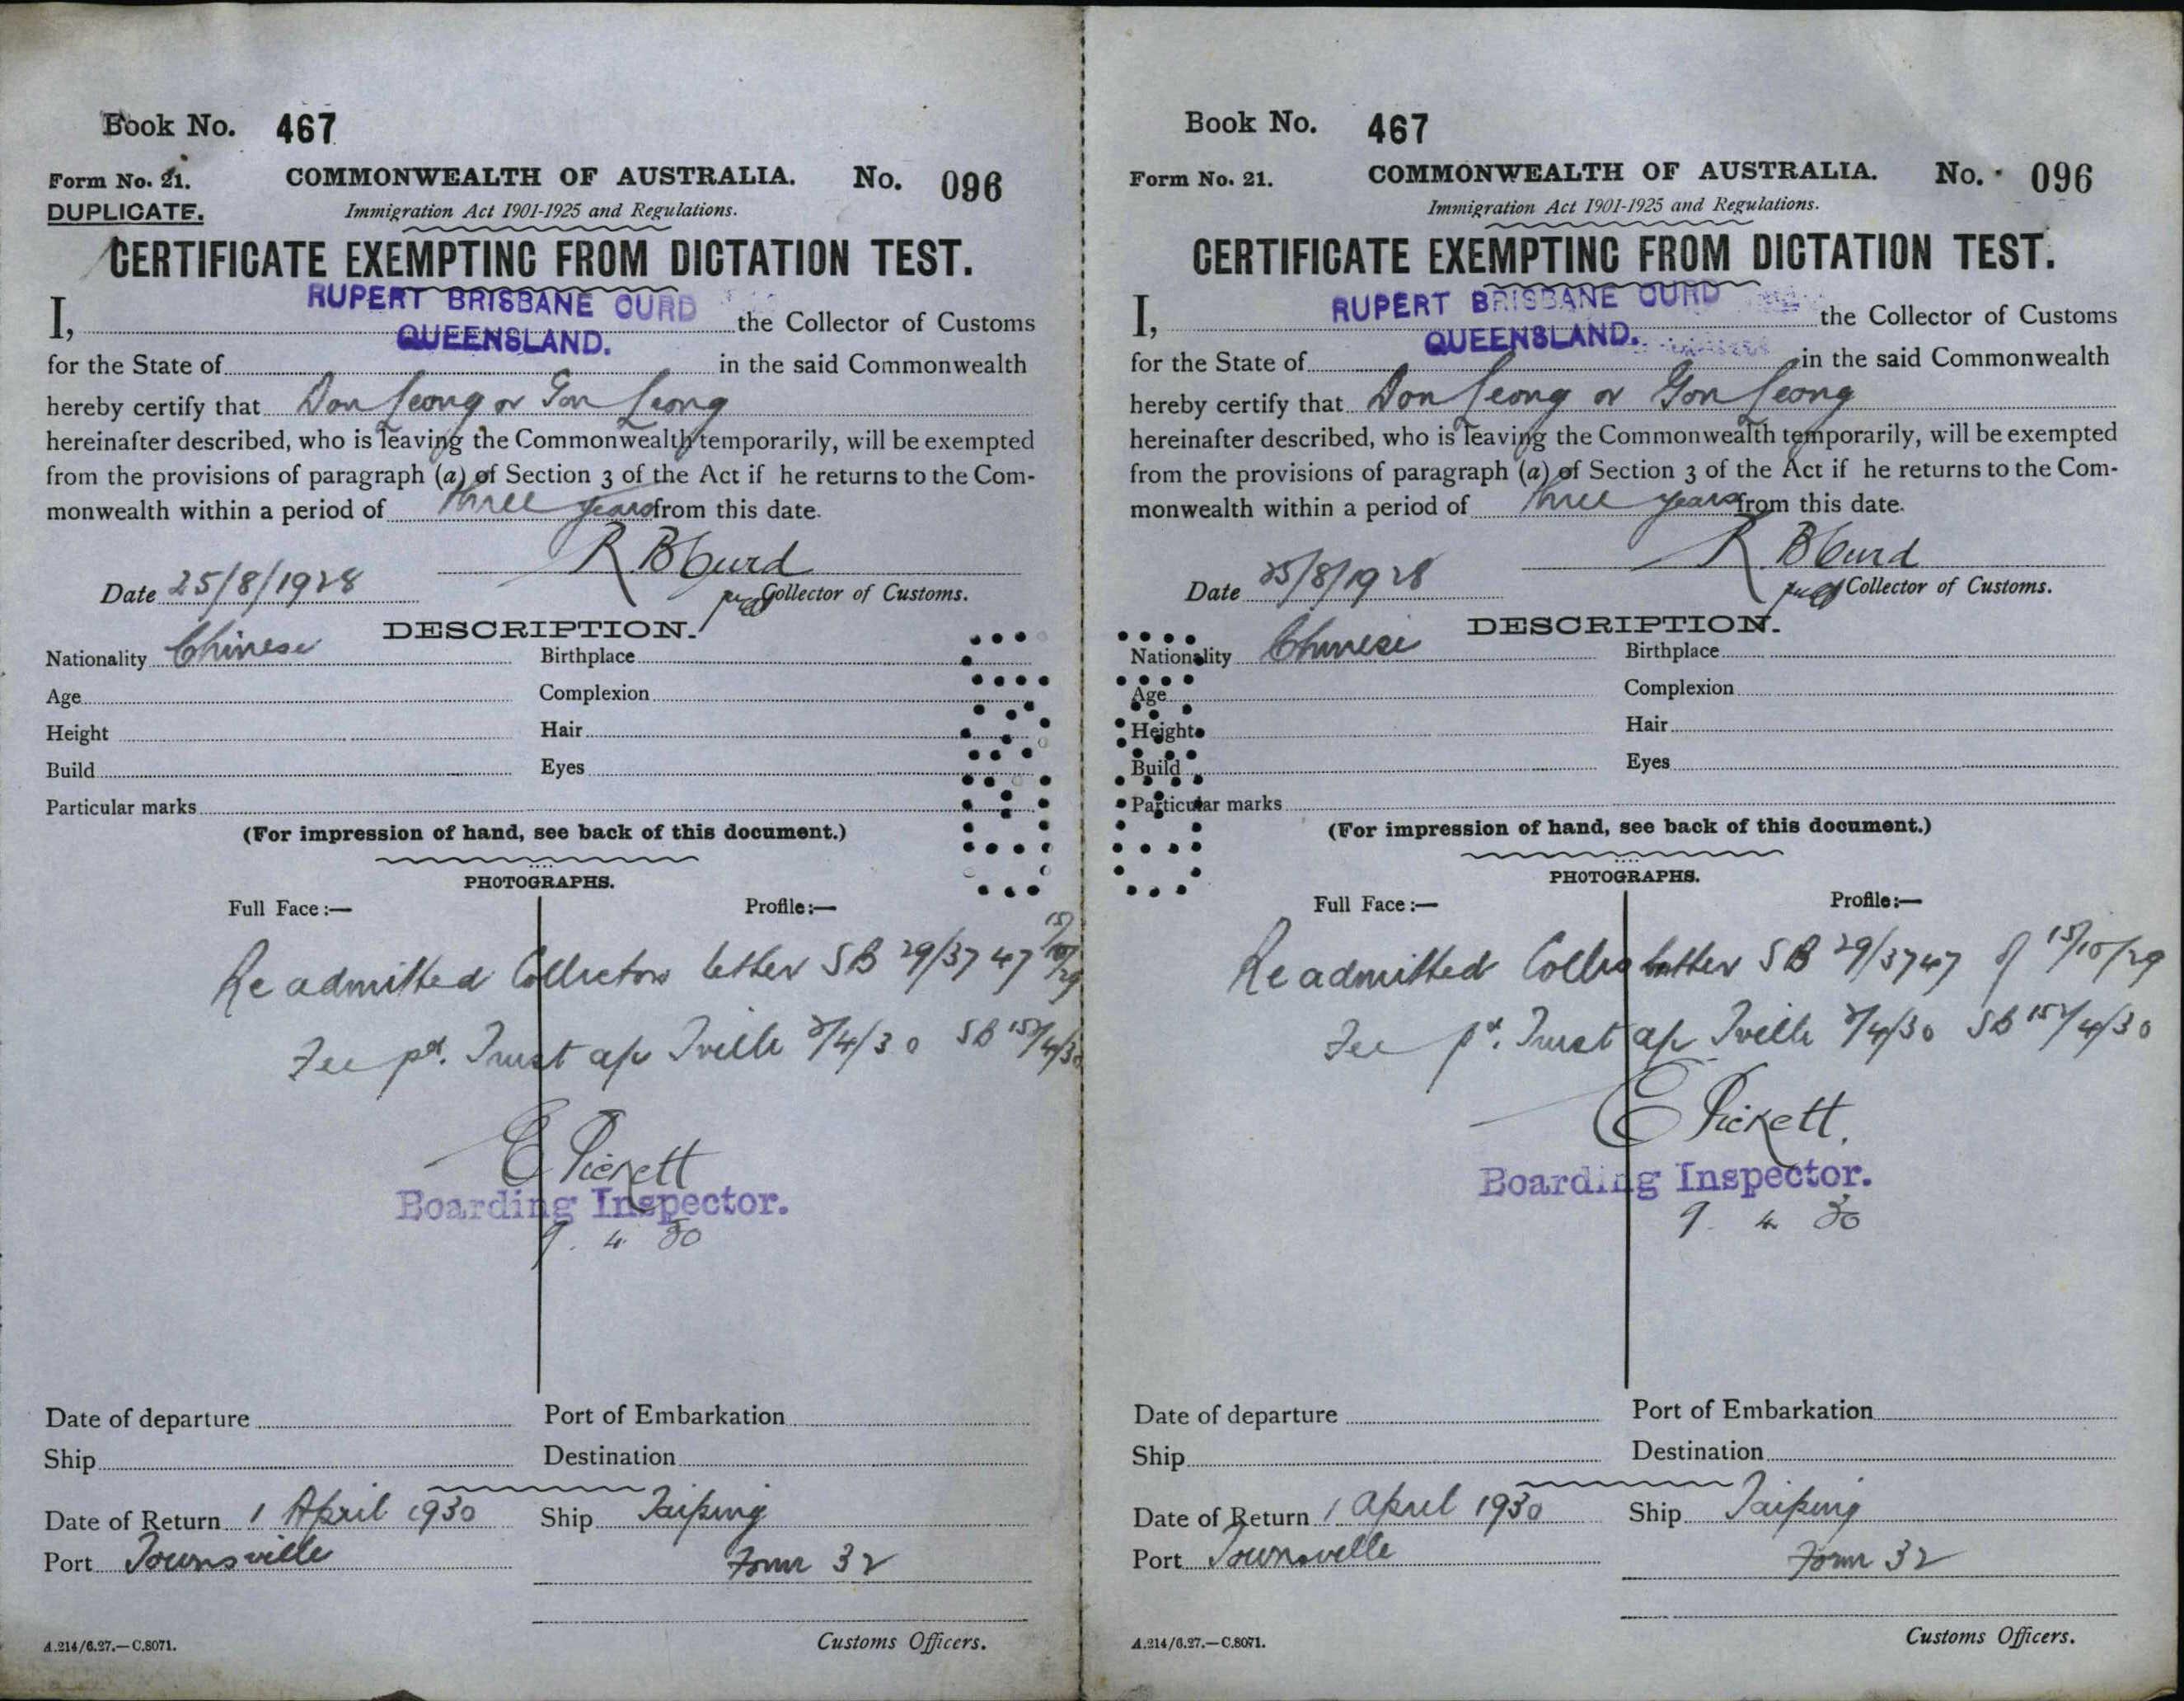 Book No. 467
Form No. 21. COMMONWEALTH OF AUSTRALIA. No. 096
DUPLICATE. Immigration Act 1901-1925 and Regulations.
CERTIFICATE EXEMPTING FROM DICTATION TEST.
RUPERT BRISBANE CURD
I, the Collector of Customs
QUEENSLAND.
for the State of in the said Commonwealth
hereby certify that Don Leong or Gon Leong
hereinafter described, who is leaving the Commonwealth temporarily, will be exempted
from the provisions of paragraph (a) of Section 3 of the Act if he returns to the Com-
monwealth within a period of three years from this date.
R B Curd
Date 25/8/1928 Collector of Customs.
DESCRIPTION.
Nationality Chinese Birthplace
Age Complexion
Height Hair
Build Eyes
Particular marks
(For impression of hand, see back of this document.)
PHOTOGRAPHS.
Full Face:— Profile:—
Readmitted Collectors letter SB 29/3747 15/10/29
Fee pd. Trust a/c Tville /4/30 SB 15/4/30
E Pickett
Boarding Inspector.
9. 4. 30
Date of departure Port of Embarkation
Ship Destination
Date of Return 1 April 1930 Ship Taiping
Port Townsville Form 32
A.214/6.27.—C.8071. Customs Officers.
Book No. 467
Form No. 21. COMMONWEALTH OF AUSTRALIA. No. 096
Immigration Act 1901-1925 and Regulations.
CERTIFICATE EXEMPTING FROM DICTATION TEST.
RUPERT BRISBANE CURD
I, the Collector of Customs
QUEENSLAND.
for the State of in the said Commonwealth
hereby certify that Don Leong or Gon Leong
hereinafter described, who is leaving the Commonwealth temporarily, will be exempted
from the provisions of paragraph (a) of Section 3 of the Act if he returns to the Com-
monwealth within a period of three years from this date.
R B Curd
Date 25/8/1928 Collector of Customs.
DESCRIPTION.
Nationality Chinese Birthplace
Age Complexion
Height Hair
Build Eyes
Particular marks
(For impression of hand, see back of this document.)
PHOTOGRAPHS.
Full Face:— Profile:—
Readmitted letter SB 29/3747 of 15/10/29
Fee pd. Trust a/c Tville /4/30 SB 15/4/30
E Pickett.
Boarding Inspector.
9. 4 30
Date of departure Port of Embarkation
Ship Destination
Date of Return 1 April 1930 Ship Taiping
Port Townsville Form 32
A.214/6.27.—C.8071. Customs Officers.